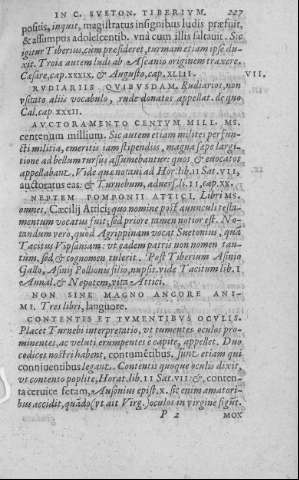 IN C. SVETON. TIBERIVM. 227
positis, inquit, magistratus insignibus ludis præfuit,
& assumptos adolescentib. vnà cum illis saltauit. Sic
igitur Tiberius, cùm præsideret, turmam etiam ipse du-
xit. Trois autem ludi ab Ascanio originem traxere.
Cæsare, cap. XXXIX. & Augusto, cap. XLIII. VII.
RVDIARIIS QVIBVSDAM. Rudiarios, non
vsitato aliis vocabulo, rude donatos appellat. de quo
Cal. cap. XXXII.
AVCTORAMENTO CENTVM MILL. MS.
centenum millium. Sic autem etiam milites perfun-
cti militia, emeritis iam stipendiis, magna sæpe largi-
tione ad bellum rursus assumebantur: quos & euocatos
appellabant. Vide quæ notaui ad Hor. lib. II Sat. VII,
auctoratus eas. & Turnebum, aduers. li. II, cap. XX.
NEPTEM POMPONII ATTICI. Libri MS.
omnes, Cæcilij Attici: quo nomine post auunculi testa-
mentum vocatus fuit: sed priore tamen notior est. No-
tandum verò, quòd Agrippinam vocat Suetonius, quā
Tacitus Vipsaniam: vt eadem patris non nomen tan-
tùm, sed & cognomen tulerit. Post Tiberium Asinio
Gallo, Asinij Pollionis filio, nupsit. vide Tacitum lib. I
Annal. & Nepotem, vita Attici.
NON SINE MAGNO ANGORE ANI-
MI. Tres libri, languore.
CONTENTIS ET TVMENTIBVS OCVLIS.
Placet Turnebi interpretatio, vt tumentes oculos pro-
minentes, ac veluti erumpentes è capite, appellet. Duo
codices nostri habent, contumētibus. sunt etiam qui
conniuentibus legant. Contentis quoque oculis dixit,
vt contento poplite, Horat. lib. II Sat. VII: &, conten-
ta ceruice fetam, Ausonius epist. X. sic enim amatori-
bus accidit, quādo (vt ait Virg.) oculos in virgine figūt.
P 2 MOX